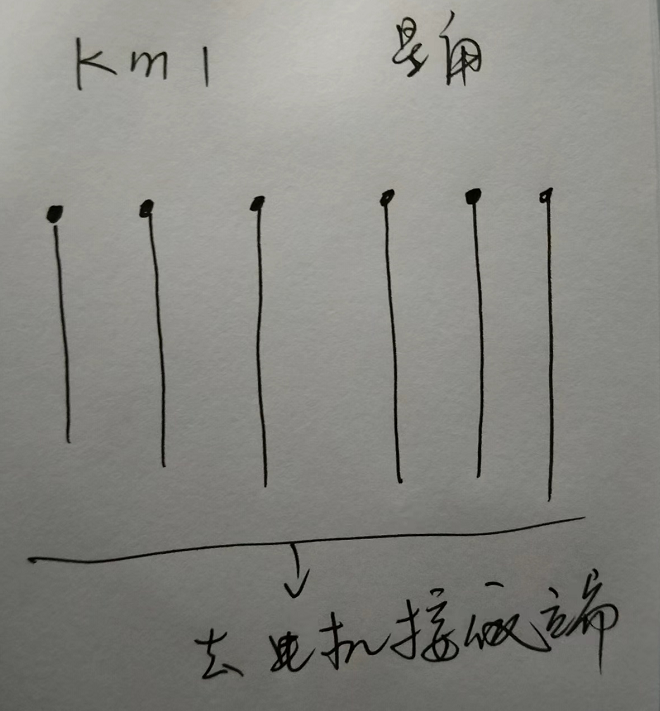 Km1 星角
去电机接线端